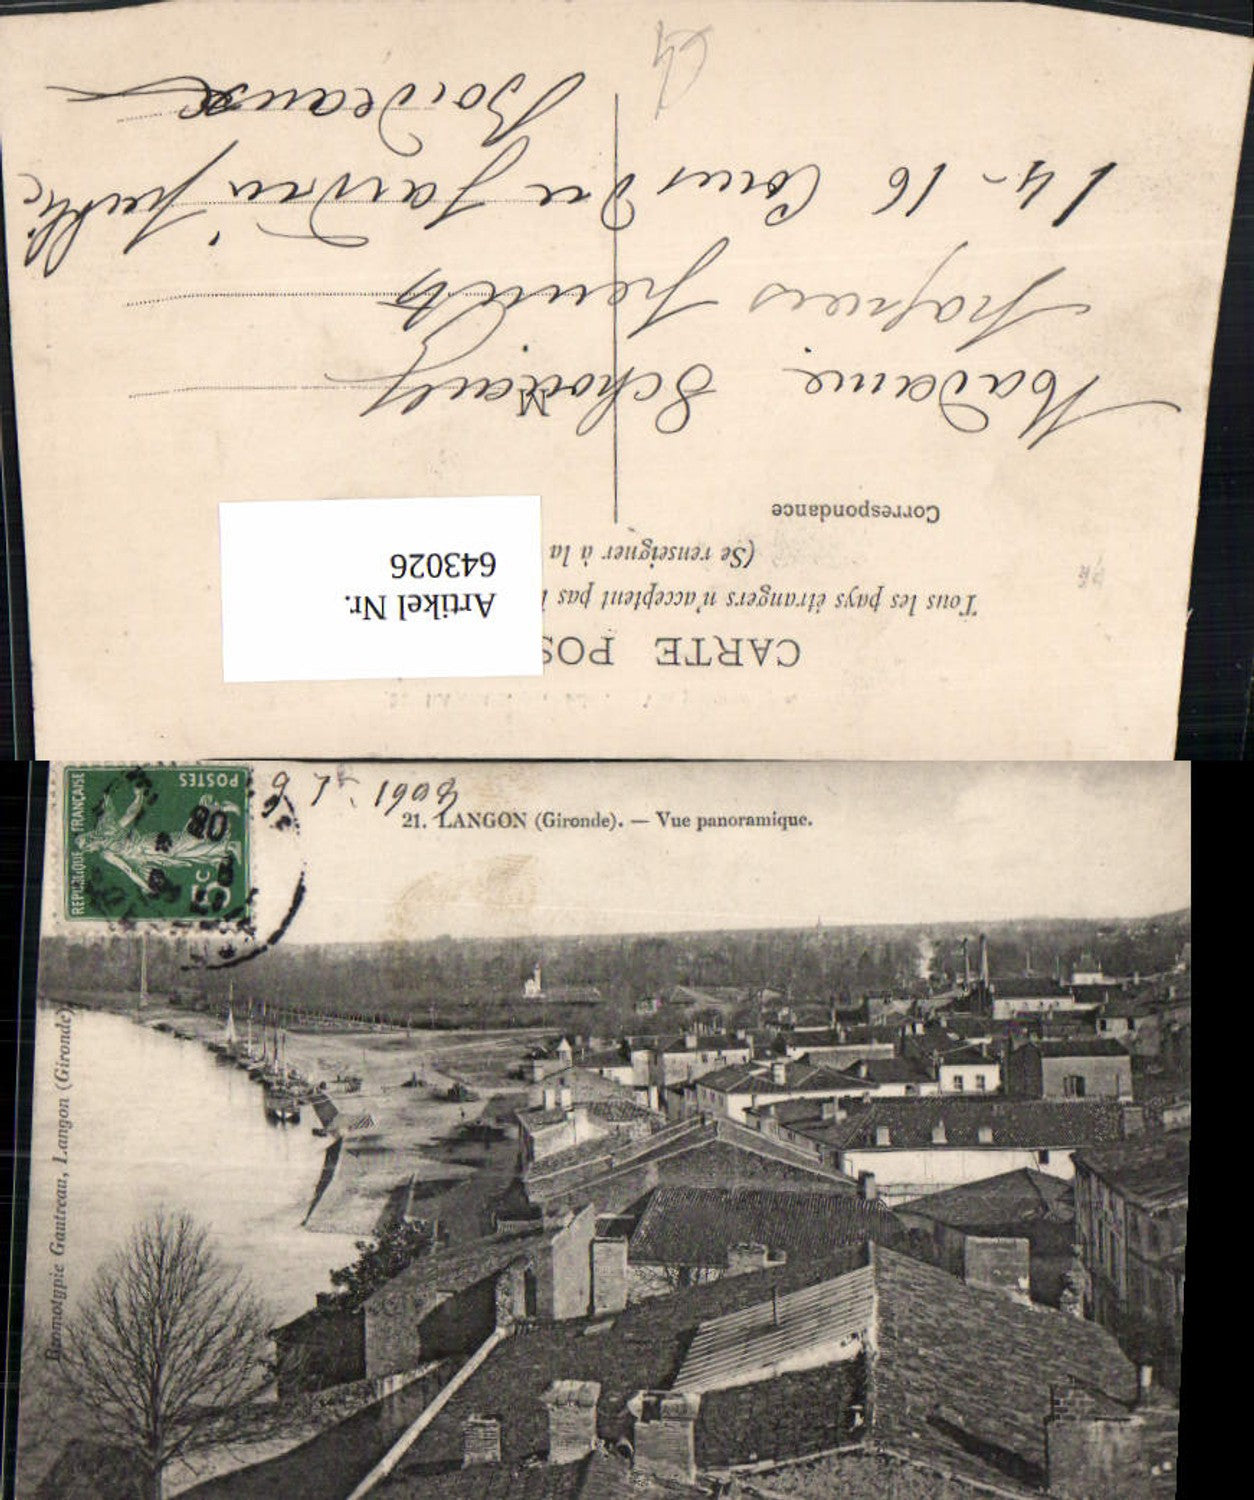 CARTE POS
Tous les pays étrangers n'acceptent pas
(Se renseigner à la
Correspondance
M
Artikel Nr.
643026
Madame
14-16 Cours du Jardin public
Bordeaux
6 1908
21. LANGON (Gironde). — Vue panoramique.
REPUBLIQUE FRANÇAISE
POSTES
5c
08
Bromotypie Gautreau, Langon (Gironde)